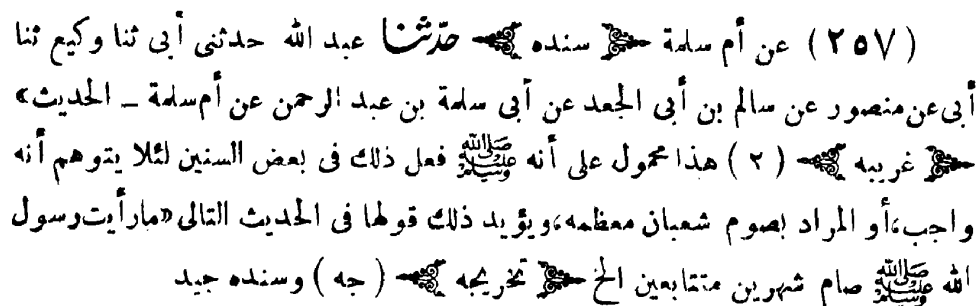 (٢٥٧) عن أم سلمة ﴿ سنده ﴾ حدّثنا عبد الله حدثنى أبى ثنا وكيع ثنا
أبى عن منصور عن سالم بن أبى الجعد عن أبى سلمة بن عبد الرحمن عن أم سلمة ـ الحديث»
﴿ غريبه ﴾ (٢) هذا محمول على أنه ﷺ فعل ذلك فى بعض السنين لئلا يتوهم أنه
واجب، أو المراد بصوم شعبان معظمه، ويؤيد ذلك قولها فى الحديث التالى «مارأيت رسول
الله ﷺ صام شهرين متتابعين الخ ﴿ تخريجه ﴾ (جه) وسنده جيد